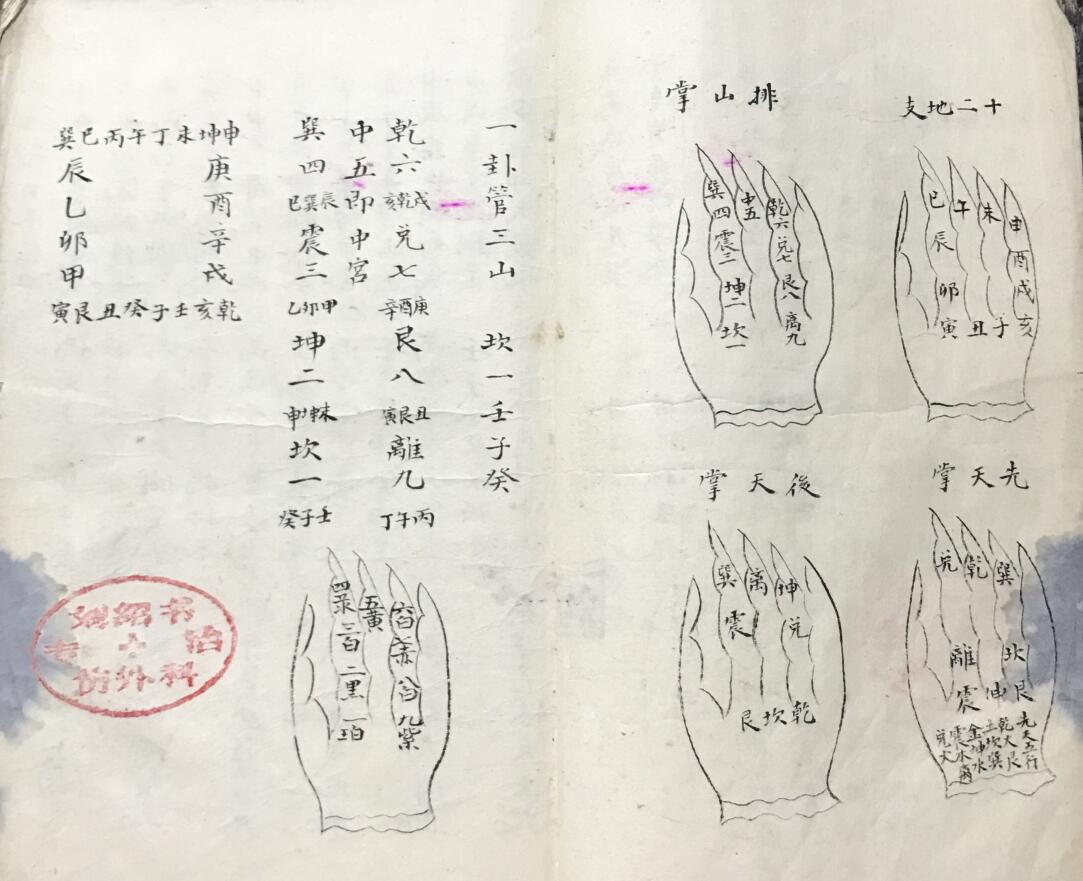 十二地支
巳午未申
辰酉
卯戌
寅丑子亥
排山掌
巽四震三坤二坎一
中五
乾六兌七艮八離九
先天掌
兌乾巽
離坎
震坤艮
先天五行
後天掌
巽離坤
震兌
艮坎乾
一卦管三山
坎一壬子癸
乾六
戌乾亥
兌七
庚酉辛
艮八
丑艮寅
離九
丙午丁
中五即中宮
巽四
辰巽巳
震三
甲卯乙
坤二
未坤申
坎一
壬子癸
巽巳丙午丁未坤申
辰庚
乙酉
卯辛
甲戌
寅艮丑癸子壬亥乾
二黑
五黃
九紫
外科